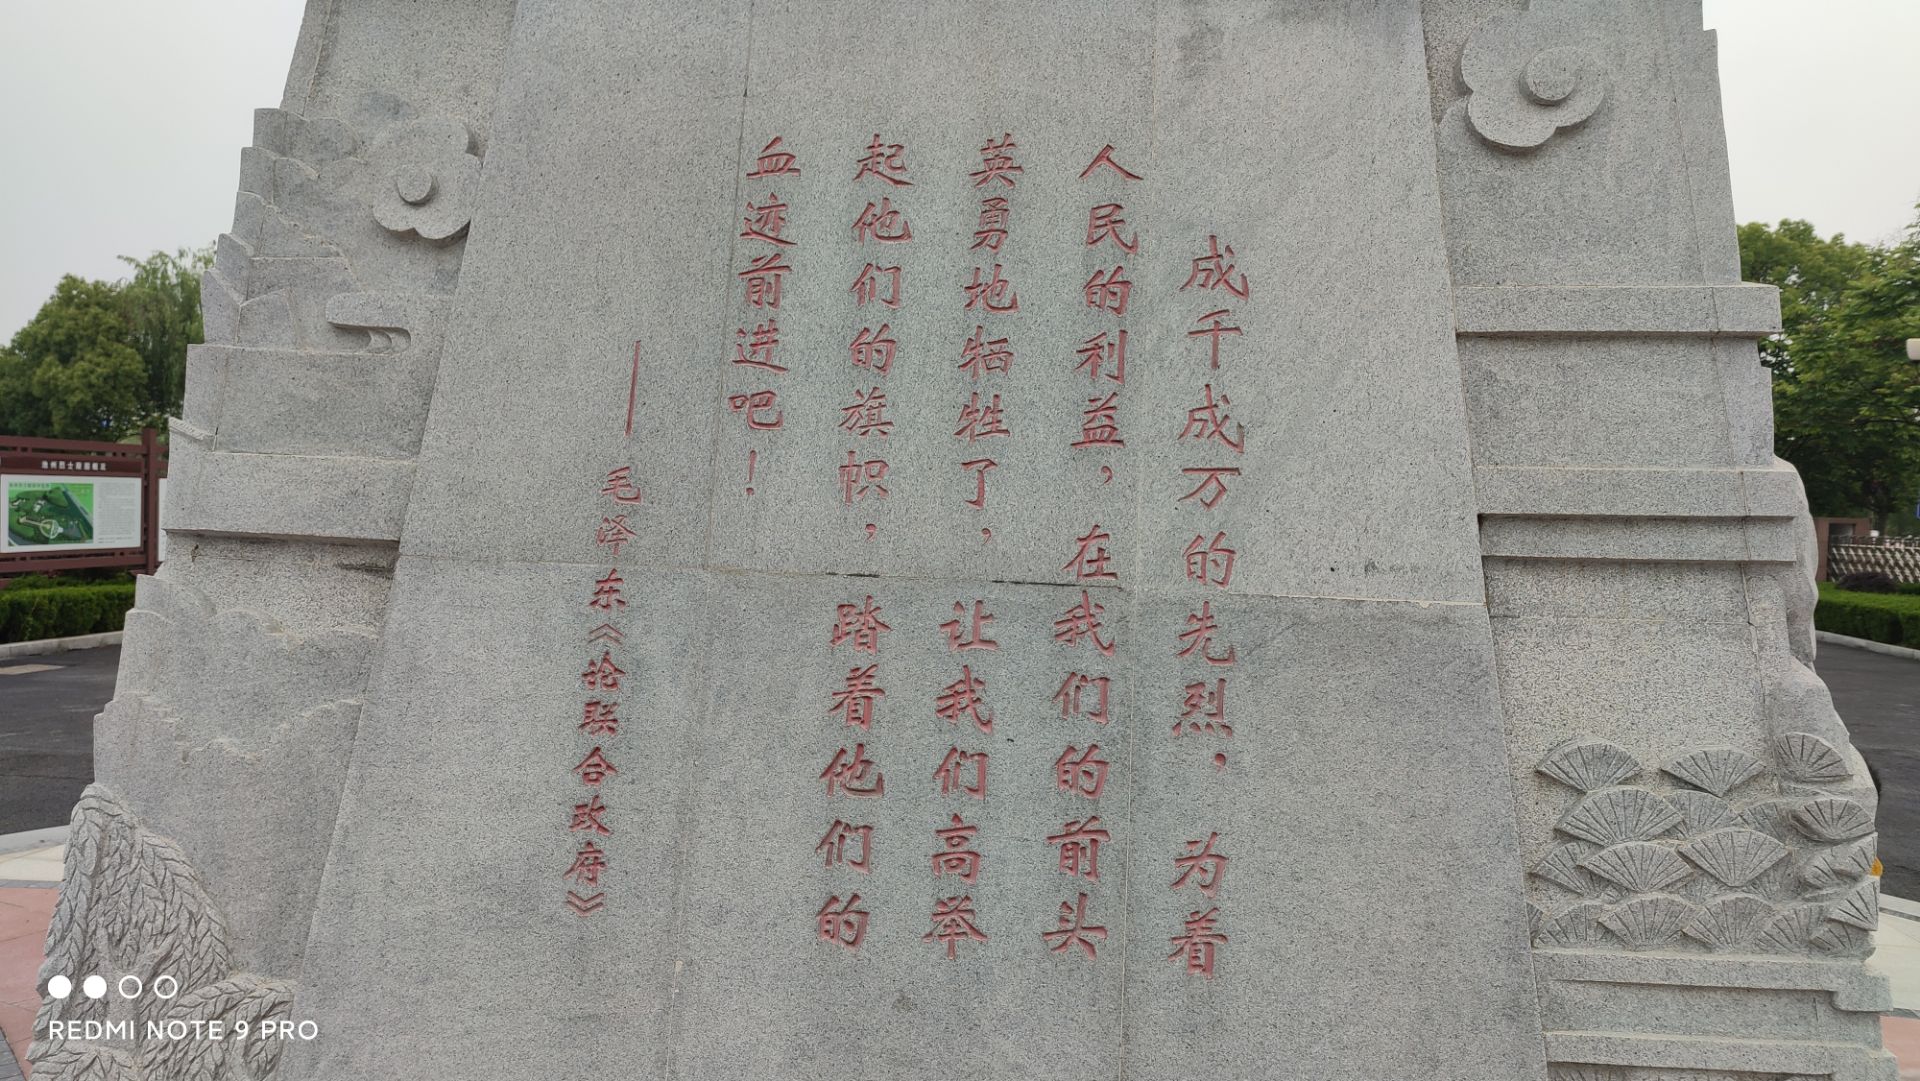 成千成万的先烈，为着
人民的利益，在我们的前头
英勇地牺牲了，让我们高举
起他们的旗帜，踏着他们的
血迹前进吧！
——毛泽东《论联合政府》
REDMI NOTE 9 PRO